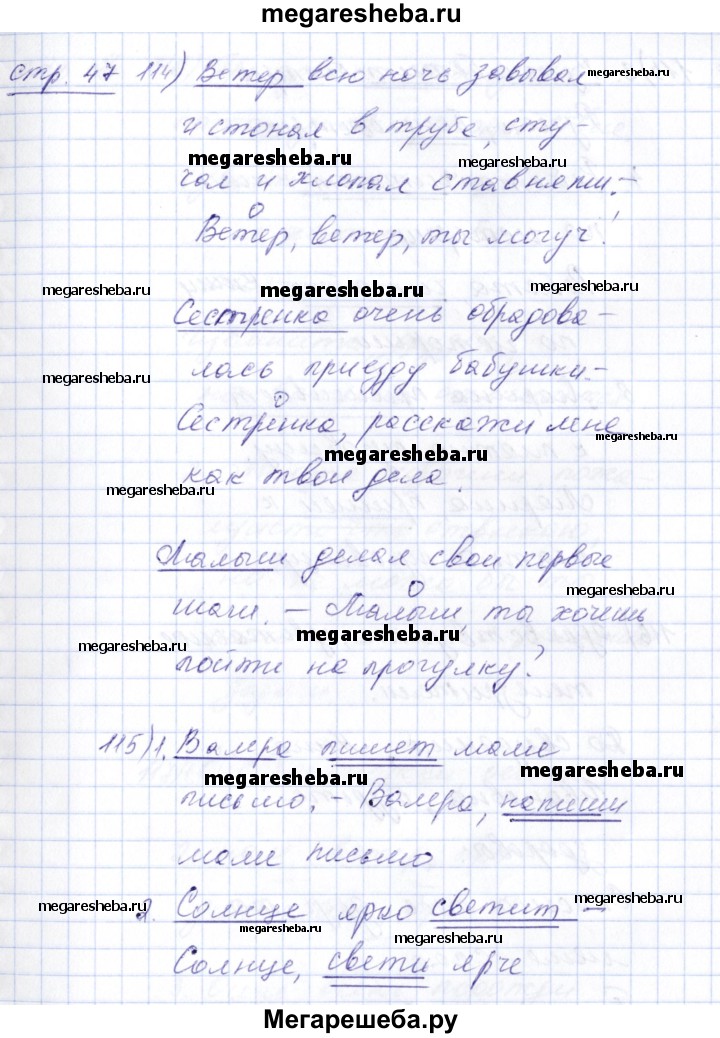 megaresheba.ru
стр. 47 114) Ветер всю ночь завывал
и стонал в трубе, сту-
megaresheba.ru megaresheba.ru
чал и хлопал ставнями. -
Ветер, ветер, ты могуч!
megaresheba.ru megaresheba.ru megaresheba.ru
Сестрёнка очень обрадова-
лась приезду бабушки -
megaresheba.ru
Сестрёнка, расскажи мне
megaresheba.ru megaresheba.ru
как твои дела.
megaresheba.ru
Малыш делал свои первые
megaresheba.ru
шаги. - Малыш, ты хочешь
megaresheba.ru megaresheba.ru
пойти на прогулку?
115) 1. Валера пишет маме
megaresheba.ru megaresheba.ru
письмо. - Валера, напиши
маме письмо
megaresheba.ru megaresheba.ru
2. Солнце ярко светит -
megaresheba.ru megaresheba.ru
Солнце, свети ярче
megaresheba.ru
Мегарешеба.ру